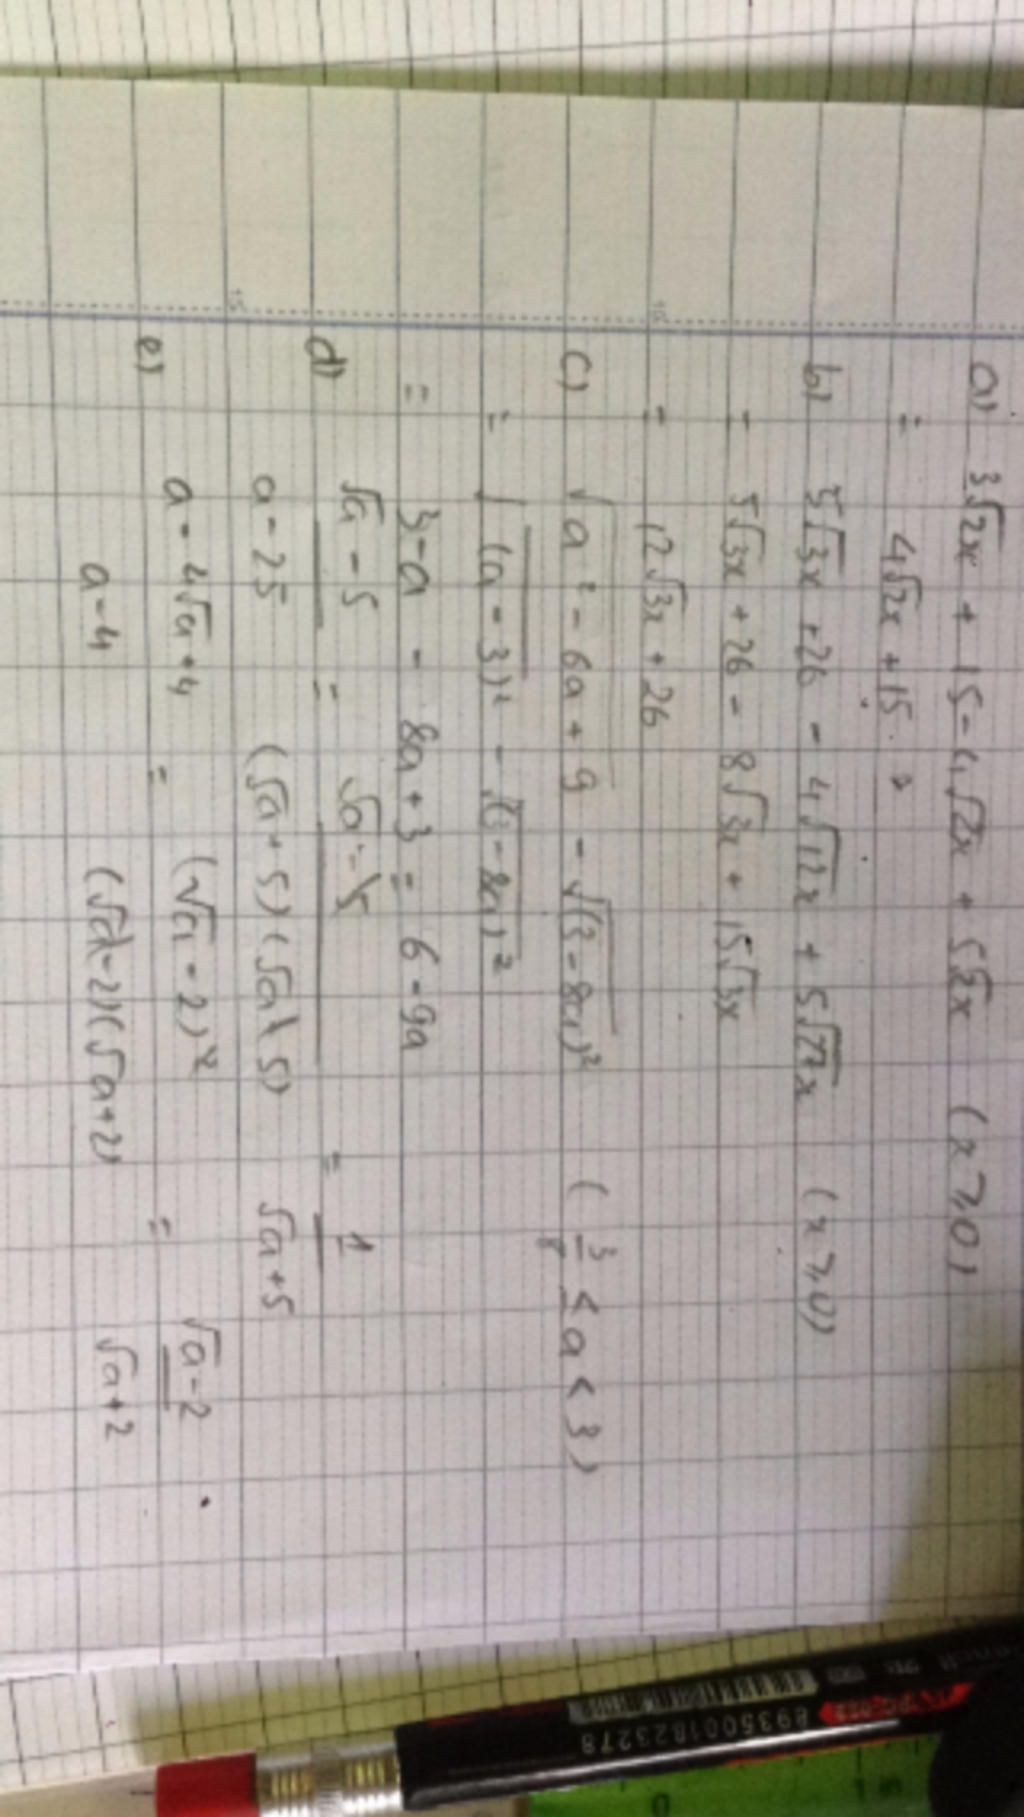 a) 3√2x + 15 - 4√2x + 5√2x (x ≥ 0)
= 4√2x + 15.
b) 5√3x + 26 - 4√12x + 5√27x (x ≥ 0)
= 5√3x + 26 - 8√3x + 15√3x
= 12√3x + 26
c) √a² - 6a + 9 - √(3 - 8a)² (3/8 ≤ a < 3)
= √(a - 3)² - √(3 - 8a)²
= 3 - a - 8a + 3 = 6 - 9a
d) √a - 5 / a - 25 = √a - 5 / (√a + 5)(√a - 5) = 1 / √a + 5
e) a - 4√a + 4 / a - 4 = (√a - 2)² / (√a - 2)(√a + 2) = √a - 2 / √a + 2.
8935001823278